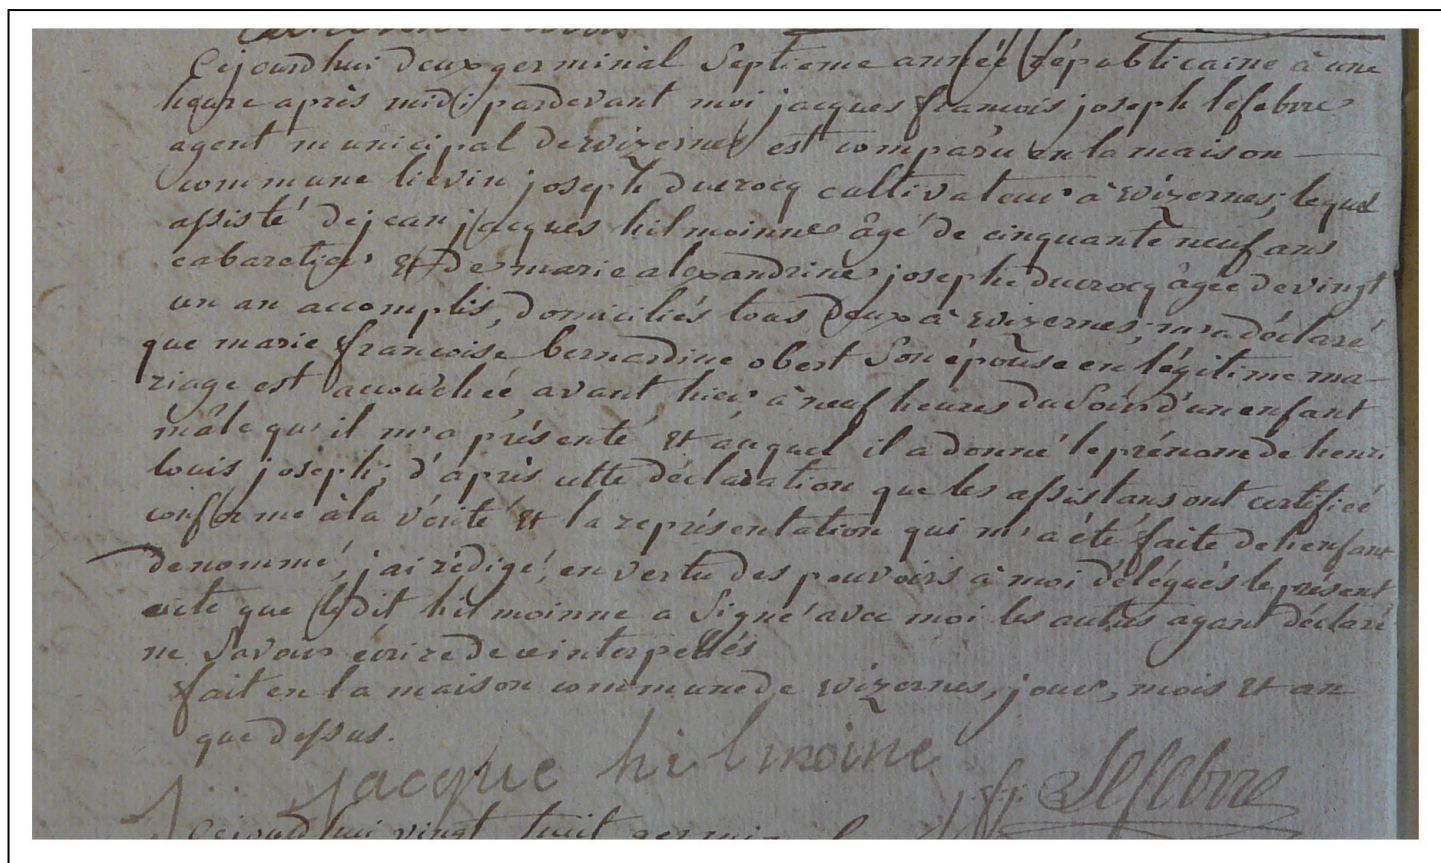 Cejourdhui deux germinal Septieme année républicaine à une
heure après midi pardevant moi jacques françois joseph lefebvre
agent municipal de wizernes est comparu en la maison
commune liévin joseph ducrocq cultivateur à wizernes; lequel
assisté de jean jacques hilmoinne âgé de cinquante neuf ans
cabaretier et de marie alexandrine josephe ducrocq âgée de vingt
un an accomplis, domiciliés tous deux à wizernes, m'a déclaré
que marie françoise bernardine obert Son épouse en légitime ma-
riage est accouchée avant hier à neuf heures du Soir d'un enfant
mâle qu'il m'a présenté et auquel il a donné le prénom de henri
louis joseph; d'après cette déclaration que les assistans ont certifiée
conforme à la vérité et la représentation qui m'a été faite de l'enfant
denommé, j'ai rédigé, en vertu des pouvoirs à moi délégués le présent
acte que ledit hilmoinne a Signé avec moi les autres ayant déclaré
ne Savoir ecrire de ce interpellés
fait en la maison commune de wizernes, jour, mois et an
que dessus.
jacque hilmoine
Lefebvre
Cejourdhui vingt huit